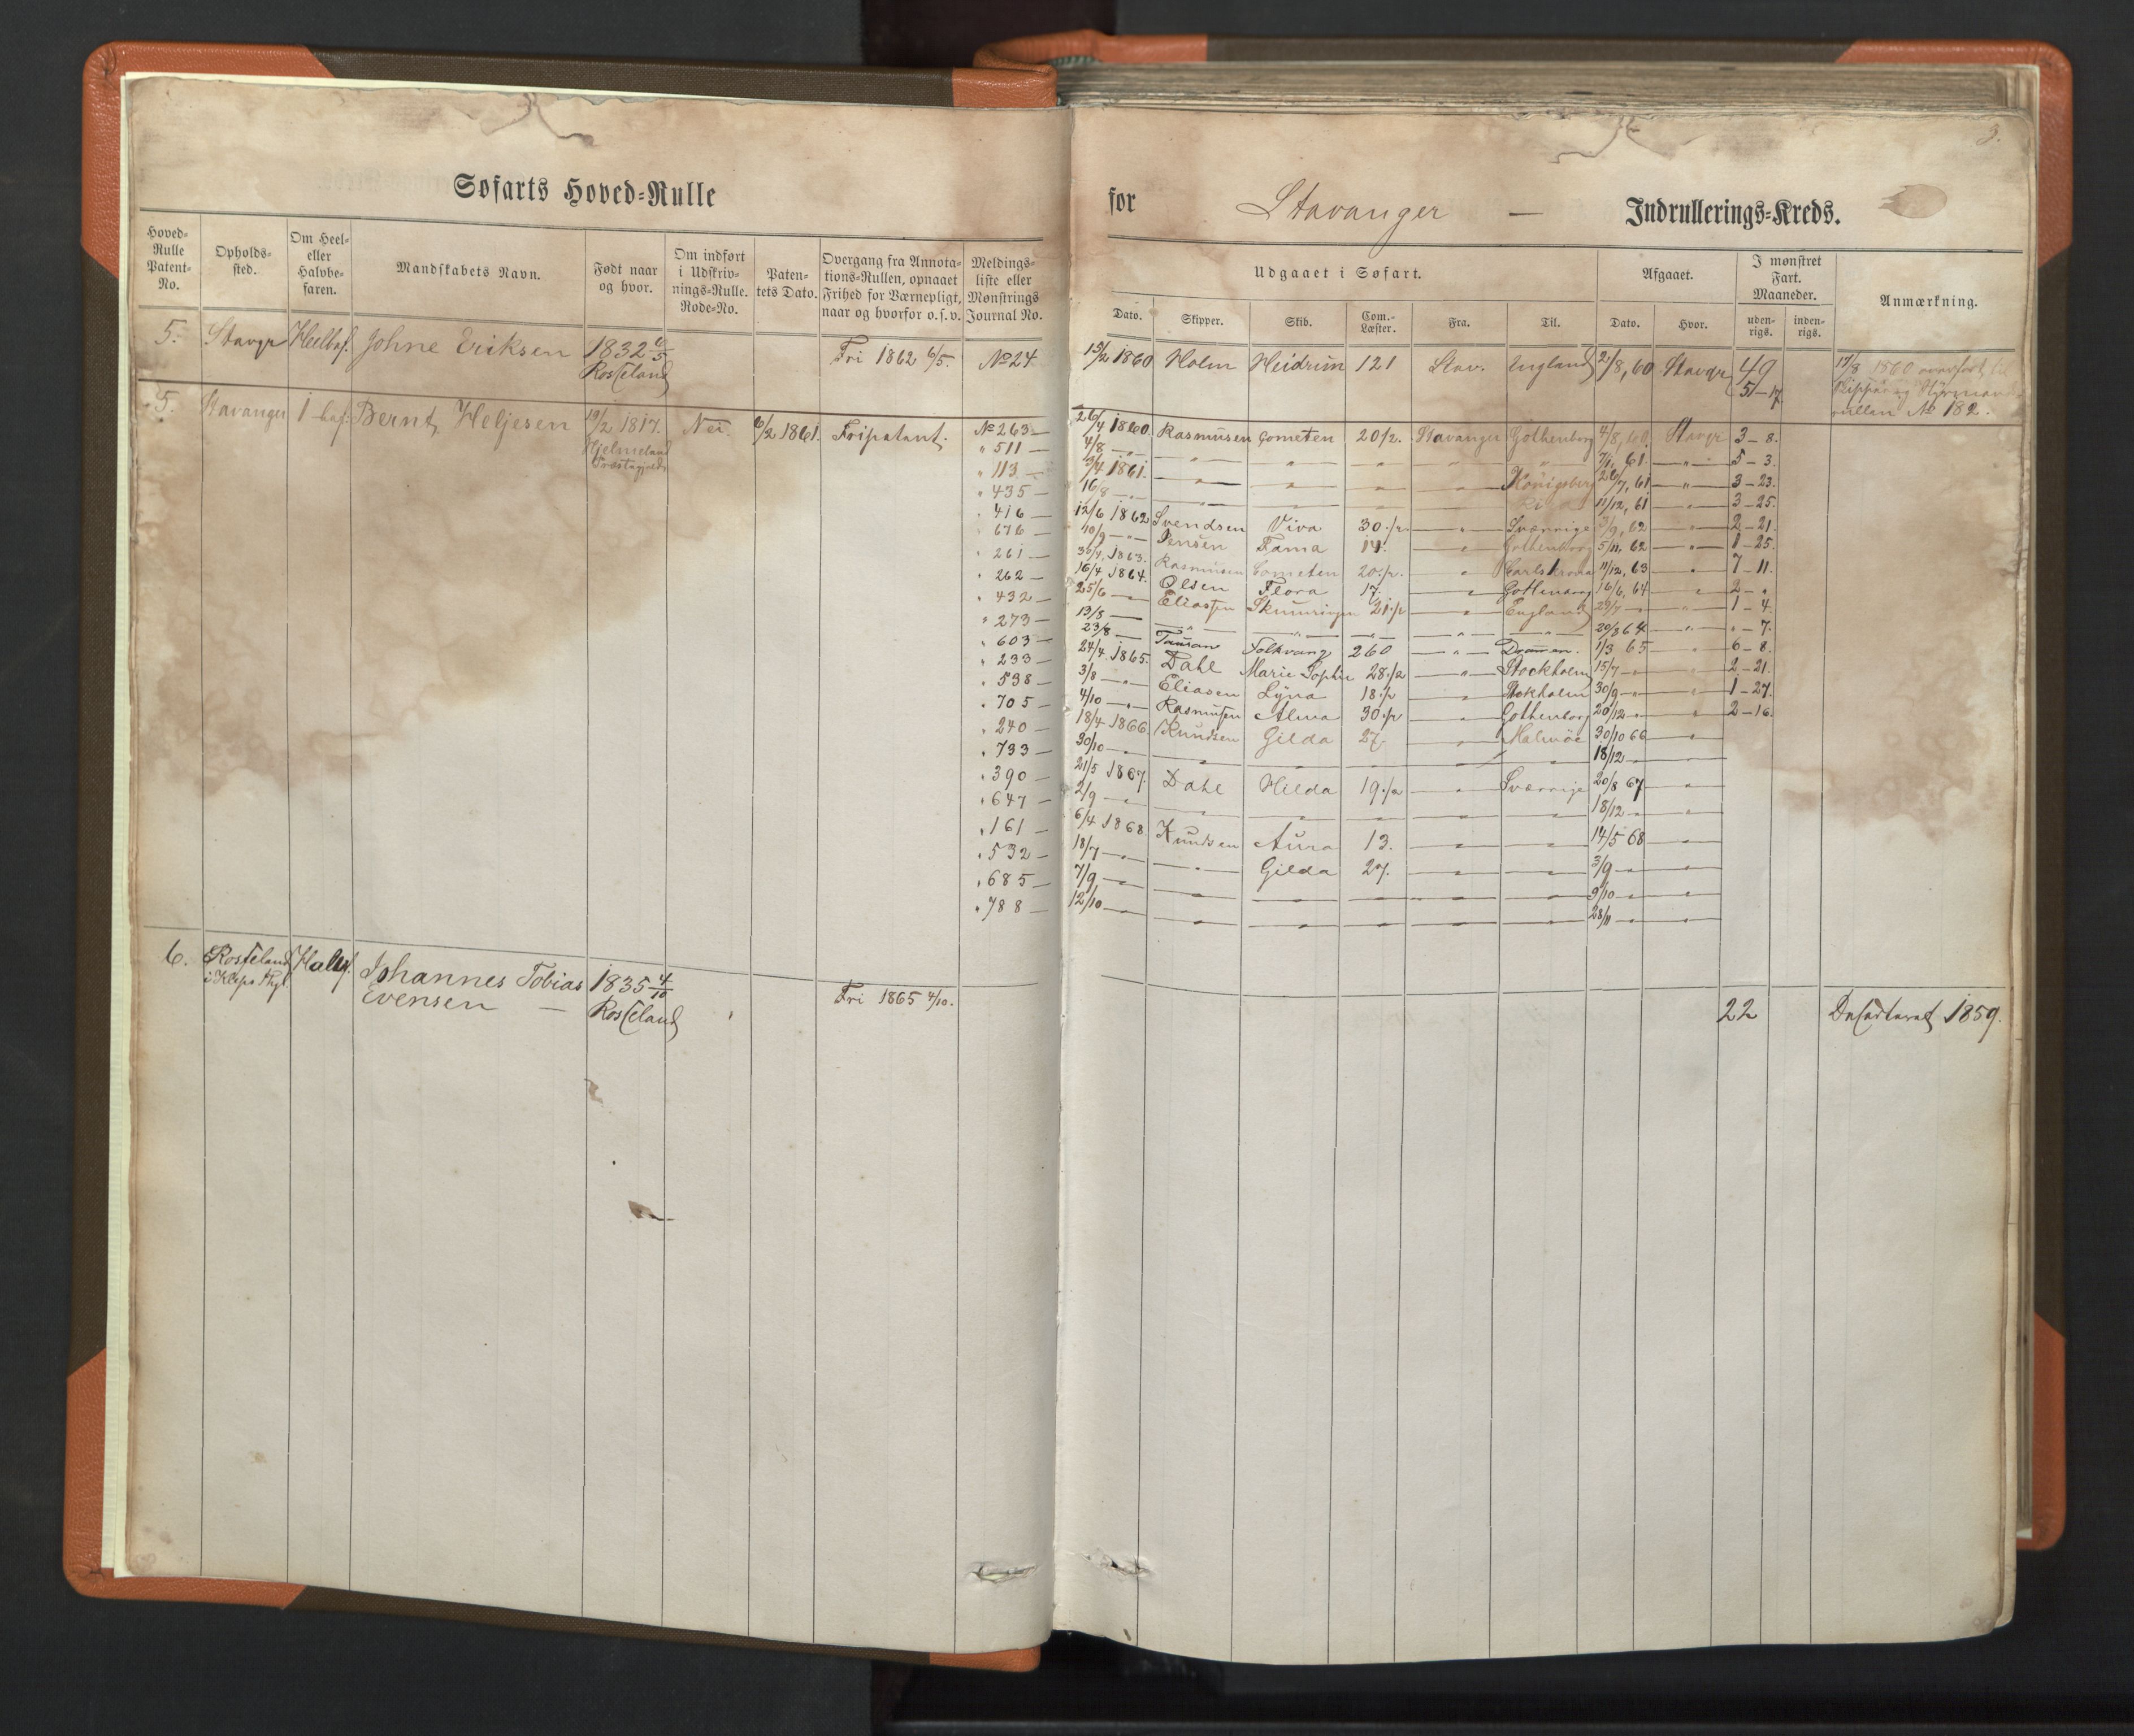 3.
Søfarts Hoved-Rulle for Stavanger — Indrullerings-Kreds.
Hoved-Rulle Patent-No. Opholds-sted. Om Heel- eller Halvbe-faren. Mandskabets Navn. Født naar og hvor. Om indført i Udskriv-nings-Rulle. Rode-No. Paten-tets Dato. Overgang fra Annota-tions-Rullen, opnaaet Frihed for Værnepligt, naar og hvorfor o.s.v. Meldings-liste eller Mønstrings Journal No.
Udgaaet i Søfart. Afgaaet. I mønstret Fart. Maaneder. Anmærkning.
Dato. Skipper. Skib. Com.-Læster. Fra. Til. Dato. Hvor. uden-rigs. inden-rigs.
5. Stavgr Heelbef. Johne Eriksen 1832 6/5 Fri 1862 6/5. No 24 15/2 1860 Holm Heidrun 121 Stav. England 2/8, 60 Stavgr 49 17/8 1860 overført til
Rosseland 5 – 17. Skipper og Styrmands
rullen No 182.
5. Stavanger 1 bef. Bernt Heljesen 19/2 1817. Nei. 6/2 1861. Fripatent. No 263 — 26/4 1860. Rasmusen Cometen 20 1/2. Stavanger Gothenborg 4/8, 60. Stavgr 3 – 8.
Hjelmeland Præstegjeld
" 511 — 4/8 — " — — " — — " — — " — — " — " 7/1, 61. — " — 5 – 3.
" 113 — 3/4 1861. — " — — " — — " — — " — Königsberg 26/7, 61 — " — 3 – 23.
" 435 — 16/8 — " — — " — — " — — " — — " — 11/12, 61 — " — 3 – 25.
" 416 — 12/6 1862 Svendsen Viva 30 1/2 — " — Sværrige 3/9, 62 — " — 2 – 21.
" 676 — 10/9 — " — Jensen Fama 14. — " — Gothenborg 5/11, 62 — " — 1 – 25.
" 261 — 30/4, 1863. Rasmusen Cometen 20 1/2. — " — Carlskrona 11/12, 63 — " — 7 – 11.
" 262 — 16/4 1864. Olsen Flora 17. — " — Gothenborg 16/6, 64 — " — 2 – "
" 432 — 25/6 — " — Eliassen Skumringen 21 1/2 — " — England 29/7 — " — 1 – 4.
" 273 — 13/8 — — " — — " — — " — — " — — " — 20/8 64 — " — " – 7.
" 603 — 23/8 — Tausan Folkvang 260 — " — Drammen. 1/3 65 — " — 6 – 8.
" 233 — 24/4 1865. Dahl Marie Sophie 28 1/2 — " — Stockholm 15/7 — — " — 2 – 21.
" 538 — 3/8 — " — Eliasen Lyna 18 1/2 — " — Stokholm 30/9 — " — 1 – 27.
" 705 — 4/10 — " — Rasmussen Alma 30 1/2 — " — Gothenborg 20/12 — " — 2 – 16.
" 240 — 18/4 1866. Knudsen Gilda 27. — " — Malmöe 30/10 66 — " —
" 733 — 30/10 — " — — " — — " — — " — — " — — " — 18/12 — " —
" 390 — 21/5 1867. Dahl Hilda 19 1/2 — " — Sværrige 20/8 67 — " —
" 647 — 2/9 — " — — " — — " — — " — — " — — " — 18/12 — " — — " —
" 161 — 6/4 1868. Knudsen Aura 13. — " — — " — 14/5 68 — " —
" 532 — 18/7 — " — — " — Gilda 27. — " — — " — 3/9 — " — — " —
" 685 — 7/9 — " — — " — — " — — " — — " — — " — 9/10 — " — — " —
" 788 — 12/10 — " — — " — — " — — " — — " — — " — 28/11 — " — — " —
6. Rosseland i Kleps Pgj. Halvf. Johannes Tobias Evensen — 1835 4/10 Rosseland Fri 1865 4/10. 22 Deserteret 1859.